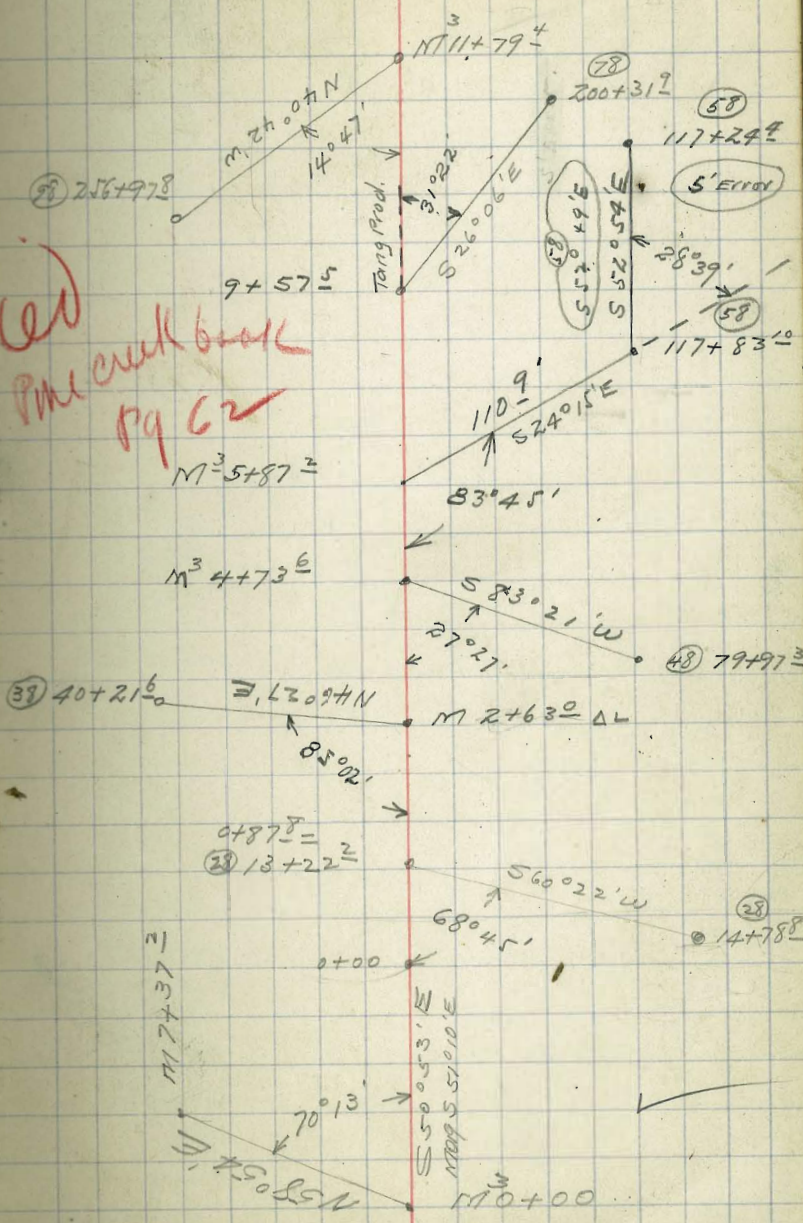 M³ 11+79 4
N40°42'W
14°47'
78
200+31 9
58
117+24 4
5' Error
256+97 8
Tang Prod.
31°22'
S26°06'E
58
S52°49'E
S52°54'E
28°39'
58
117+83 10
9+57 5
Pine creek book
Pg 62
110 9'
S24°15'E
M³ 5+87 2
83°45'
M³ 4+73 6
S83°21'W
27°27'
48 79+97 3
38 40+21 6
N46°27'E
M 2+63 0 ΔL
85°02'
0+87 8 =
28 13+22 2
S60°22'W
68°45'
28
14+78 8
0+00
M 7+37 2
S50°53'E
Mag S51°10'E
70°13'
N58°54'W
M 0+00